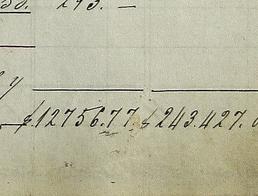 293. —
y
$12756.77 $243.427.